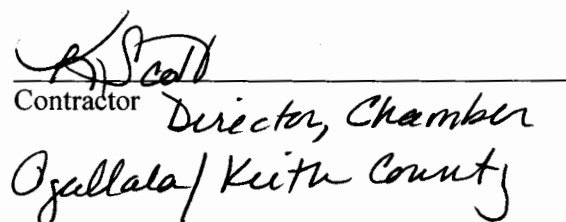 K Scott
Contractor Director, Chamber
Ogallala/Keith County